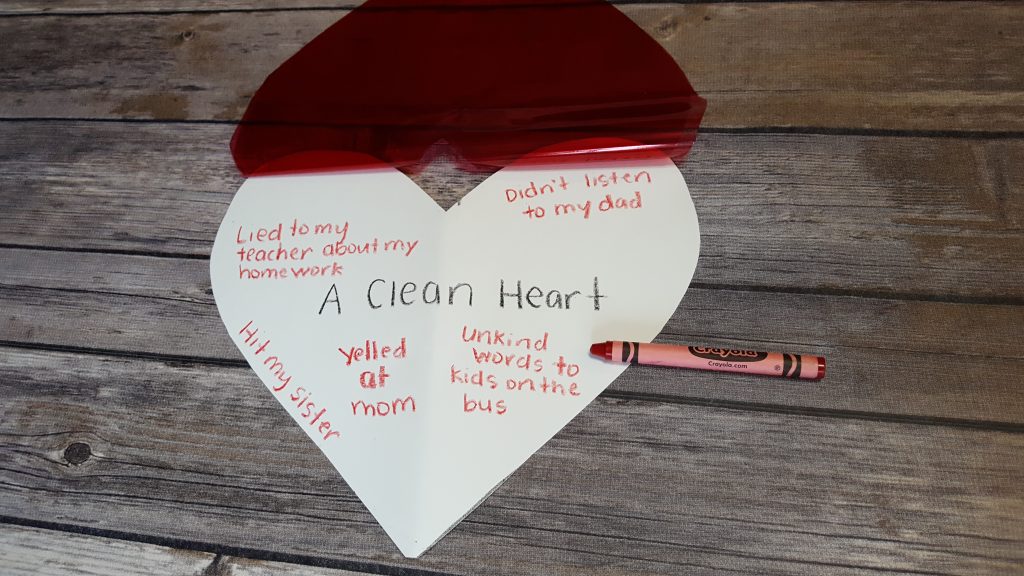 Didn't listen
to my dad
Lied to my
teacher about my
homework
A Clean Heart
Hit my sister
yelled
at
mom
Unkind
words to
kids on the
bus
Crayola
Crayola.com